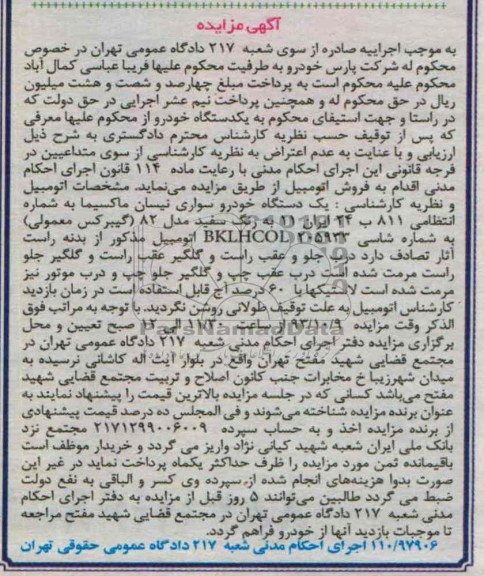 آگهی مزایده
به موجب اجراییه صادره از سوی شعبه ۲۱۷ دادگاه عمومی تهران در خصوص
محکوم له شرکت پارس خودرو به طرفیت محکوم علیها فریبا عباسی کمال آباد
محکوم علیه محکوم است به پرداخت مبلغ چهارصد و شصت و هشت میلیون
ریال در حق محکوم له و همچنین پرداخت نیم عشر اجرایی در حق دولت که
در راستا و جهت استیفای محکوم به یکدستگاه خودرو از محکوم علیها معرفی
که پس از توقیف حسب نظریه کارشناس محترم دادگستری به شرح ذیل
ارزیابی و با عنایت به عدم اعتراض به نظریه کارشناسی از سوی متداعیین در
فرجه قانونی این اجرای احکام مدنی با رعایت ماده ۱۱۴ قانون اجرای احکام
مدنی اقدام به فروش اتومبیل از طریق مزایده می‌نماید. مشخصات اتومبیل
و نظریه کارشناسی : یک دستگاه خودرو سواری نیسان ماکسیما به شماره
انتظامی ۸۱۱ ب ۲۴ ایران ۱۱ به رنگ سفید مدل ۸۲ (گیربکس معمولی)
به شماره شاسی BKLHCOD اتومبیل مذکور از بدنه راست
آثار تصادف دارد درب جلو و عقب راست و گلگیر عقب راست و گلگیر جلو
راست مرمت شده است درب عقب چپ و گلگیر جلو چپ و درب موتور نیز
مرمت شده است لاستیکها با ۶۰ درصد آج قابل استفاده است در زمان بازدید
کارشناس اتومبیل به علت توقیف طولانی روشن نگردید. با توجه به مراتب فوق
الذکر وقت مزایده ساعت ۱۱ الی ۱۲ صبح تعیین و محل
برگزاری مزایده دفتر اجرای احکام مدنی شعبه ۲۱۷ دادگاه عمومی تهران در
مجتمع قضایی شهید مفتح تهران واقع در بلوار آیت اله کاشانی نرسیده به
میدان شهرزیبا خ مخابرات جنب کانون اصلاح و تربیت مجتمع قضایی شهید
مفتح می‌باشد کسانی که در جلسه مزایده بالاترین قیمت را پیشنهاد نمایند به
عنوان برنده مزایده شناخته می‌شوند و فی المجلس ده درصد قیمت پیشنهادی
از برنده مزایده اخذ و به حساب سپرده ۲۱۷۱۲۹۹۰۰۶۰۰۹ مجتمع نزد
بانک ملی ایران شعبه شهید کیانی نژاد واریز می گردد و خریدار موظف است
باقیمانده ثمن مورد مزایده را ظرف حداکثر یکماه پرداخت نماید در غیر این
صورت بدوا هزینه‌های انجام شده از سپرده وی کسر و الباقی به نفع دولت
ضبط می گردد طالبین می‌توانند ۵ روز قبل از مزایده به دفتر اجرای احکام
مدنی شعبه ۲۱۷ دادگاه عمومی تهران در مجتمع قضایی شهید مفتح مراجعه
تا موجبات بازدید آنها از خودرو فراهم گردد.
۱۱۰/۹۷۹۰۶ اجرای احکام مدنی شعبه ۲۱۷ دادگاه عمومی حقوقی تهران